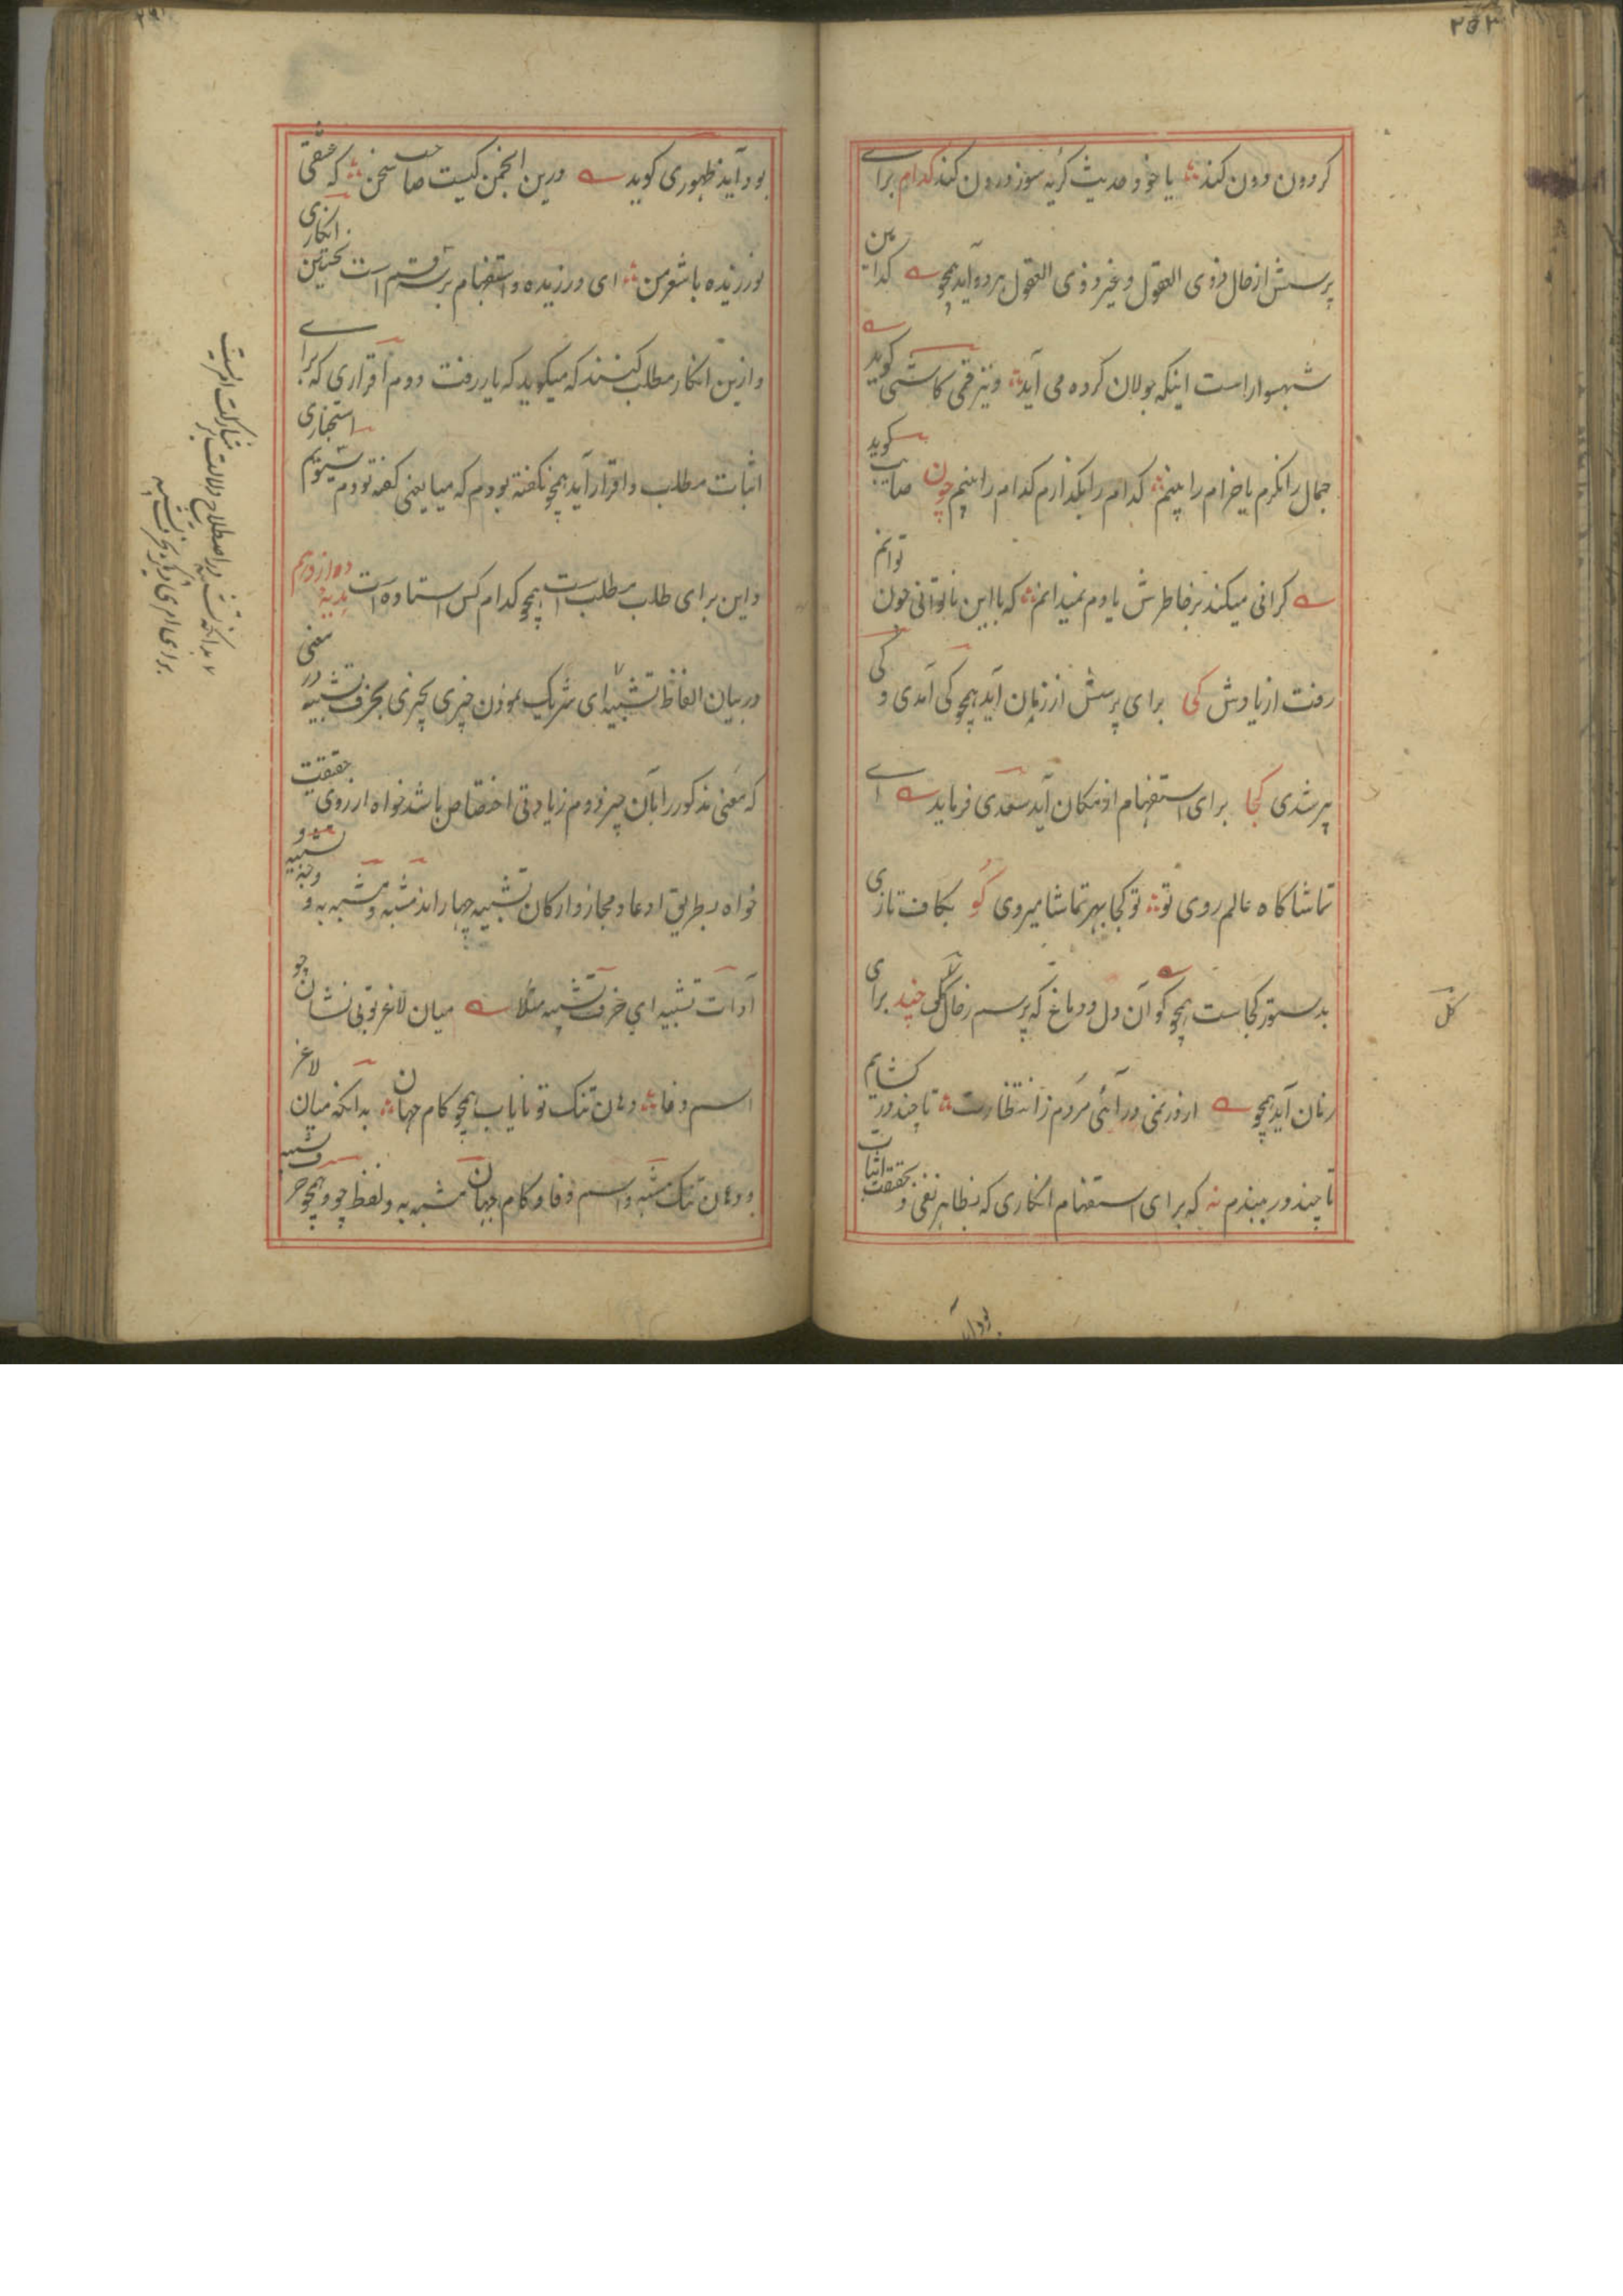 ۲۵۲
کردون دون کند ؞ یا خود حدیث کریه سوز درون کند کدام برای
پرسش از حال ذوی العقول و غیر ذوی العقول هر دو آید همچو کدامین
شهسوار است اینکه جولان کرده می آید ؞ و نیز قمی کاشی کوید
جمال را نکرم یا خرام را بینم ؞ کدام را بکذارم کدام را بینم چون صایب کوید
کرانی میکند بر خاطرش یادم نمیدانم ؞ که با این ناتوانی چون توانم
رفت از یادش کی برای پرسش از زمان آید همچو کی آمدی و کی
پیر شدی کجا برای استفهام از مکان آید سعدی فرماید ای
تماشا کاه عالم روی تو ؞ تو کجا بهر تماشا میروی کو بکاف تازی
بدستور کجاست همچو کو آن دل و دماغ که پرسم ز حال کل چند برای
زمان آید همچو از روزنمی در آئی مردم ز انتظارت ؞ تا چند در کشایم
تا چند در ببندم نه که برای استفهام انکاری که بظاهر نفی و بحقیقت اثبات
کل
بود آید
بود آید ظهوری کوید درین انجمن کیست صاحب سخن ؞ که عشقی
نورزیده با شعر من ؞ ای ورزیده و استفهام بر سه قسم است نخستین انکاری
و ازین انکار مطلب کنند که میکوید که یار رفت دوم اقراری که برای
اثبات مطلب و اقرار آید همچو نکفته بودم که میا یعنی کفته بودم سیوم استخباری
و این برای طلب مطلب است همچو کدام کس استاده است دوازدهم
در بیان الفاظ تشبیه ای شریک نمودن چیزی بچیزی بحرف تشبیه در معنی
که معنی مذکور را بآن چیز دوم زیادتی اختصاص باشد خواه از روی حقیقت
خواه بطریق ادعا و مجاز و ارکان تشبیه چهار اند مشبه و مشبه به و وجه تشبیه و
ادات تشبیه ای حرف تشبیه مثلا میان لاغر تو بی نشان چو
اسم وفا ؞ دهان تنک تو نایاب همچو کام جهان ؞ بدانکه میان لاغر
و دهان تنک مشبه و اسم وفا و کام جهان مشبه به و لفظ چو و همچو حرف تشبیه
بدانکه تشبیه در اصطلاح دلالت بر مشارکت امریست
برای امری دیکر بحرف تشبیه